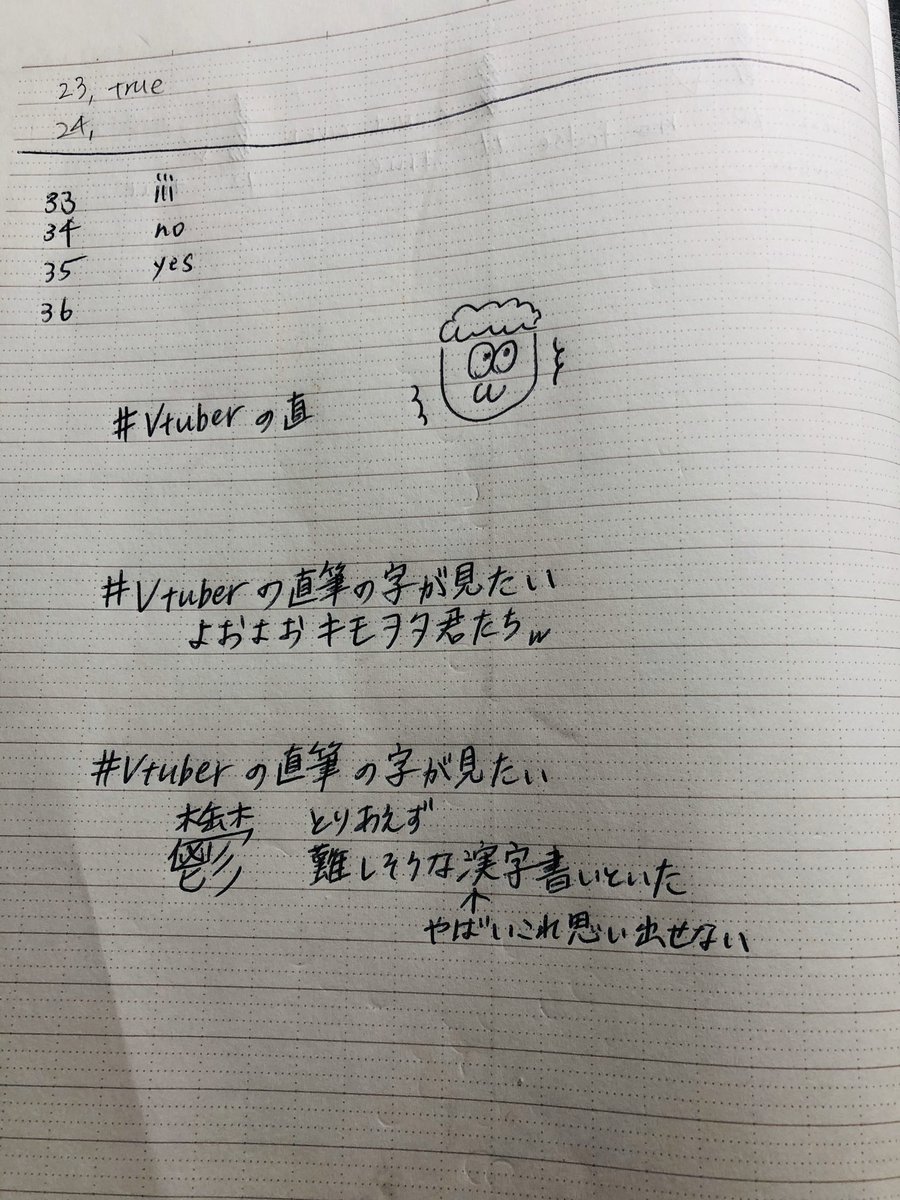 23, true
24,
33 iii
34 no
35 yes
36
#Vtuberの直
#Vtuberの直筆の字が見たい
よおよおキモヲタ君たちw
#Vtuberの直筆の字が見たい
鬱 とりあえず
難しそうな漢字書いといた
↑
やばいこれ思い出せない